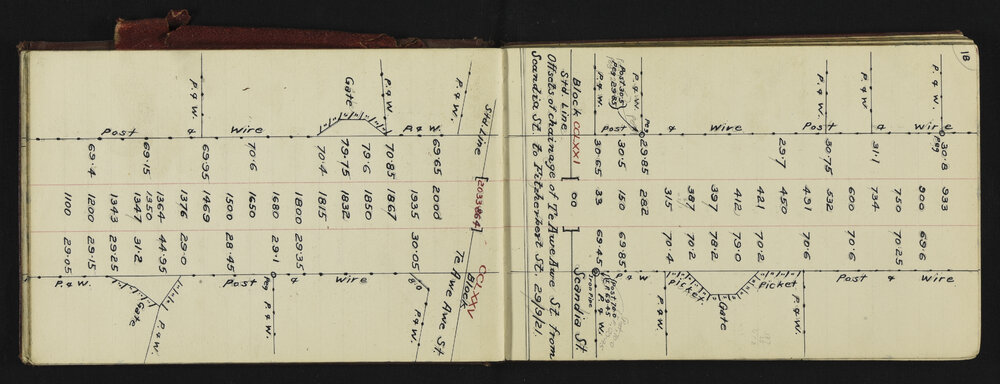 18
P. & W. Peg 30.8 933
900 69.6 Wire
750 70.25
P. & W. 31.1 734
& 600 70.6 Post &
P. & W. 30.75 532
Post 431 70.6
29.7 450
421 70.2 Picket
Wire 412 79.0
397 78.2 Gate
387 70.2
& 315 70.4 Picket
P. & W. Peg 29.85 282
Post 30.5
Peg 29.85
Post 30.5 150 69.85 P & W
P. & W. 30.65 33 69.45 Iron Tube P. & W.
Block CCLXXI
Std. Line [ 00 ] Scandia St
Offsets of chainage of Te Awe Awe St. from
Scandia St. to Fitzherbert St. 29/9/21.
Std Line [2033.864] CCLXXV
Block
Te Awe Awe St
P. & W. 69.65 2000
P. & W. 1935 30.05 P. & W.
P. & W. 70.85 1867
79.6 1850
Gate 79.75 1832
70.4 1815
1800 29.35 Wire
1680 29.1 Peg P. & W.
70.6 1650
Wire 1500 28.45 Post &
P. & W. 69.95 1469
& 1376 29.0
1364 44.95 P. & W.
69.15 1350
1347 31.2 Gate
Post 1343 29.25
69.4 1200 29.15
1100 29.05 P. & W.